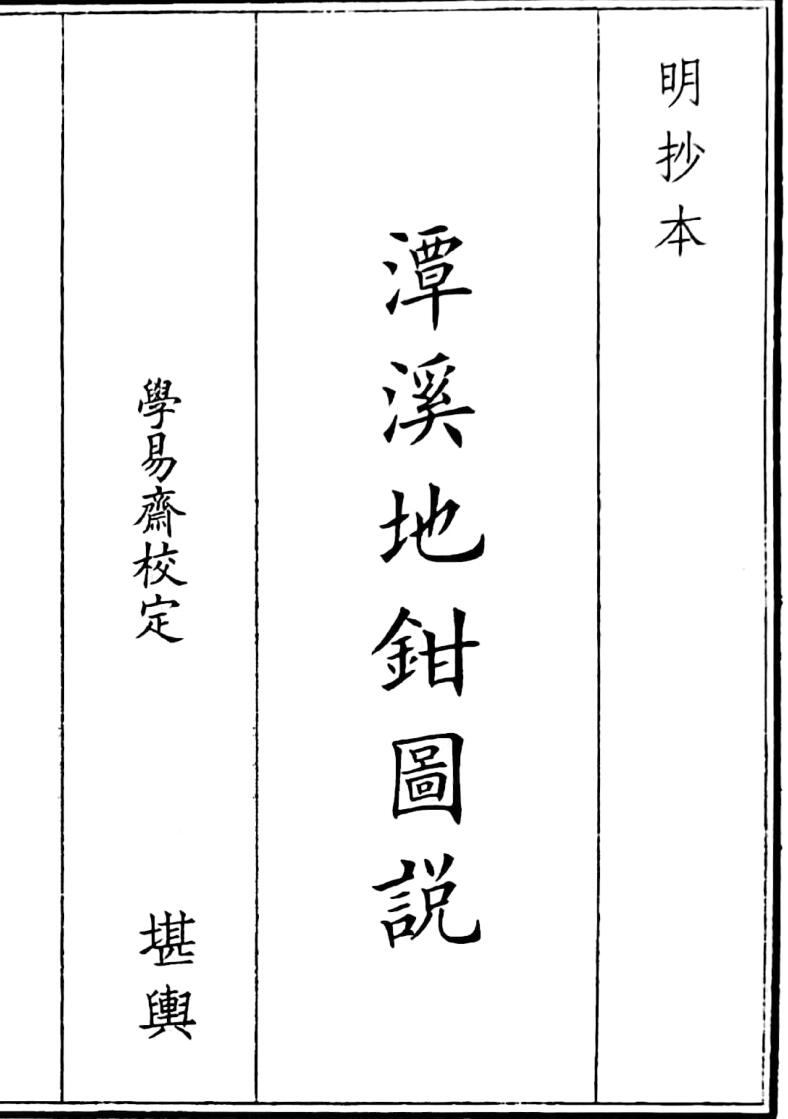 明抄本
潭溪地鉗圖説
學易齋校定
堪輿